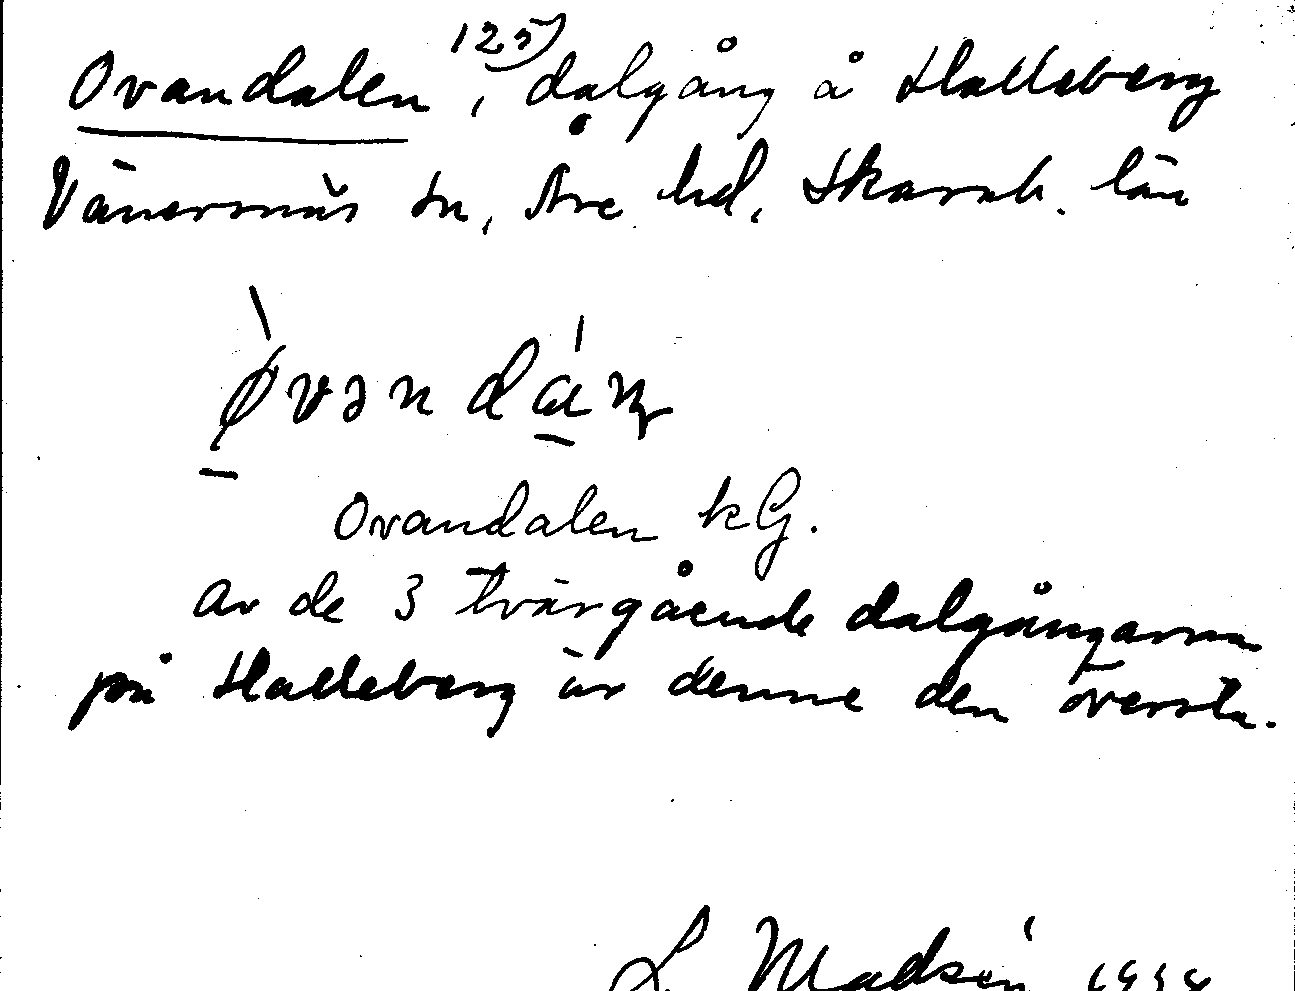 Ovandalen 125), dalgång å Halleberg
Vänersnäs sn, Åse hd, Skarab. län
Øvəndán
Ovandalen kG.
Av de 3 tvärgående dalgångarna
på Halleberg är denne den översta.
L Madsén